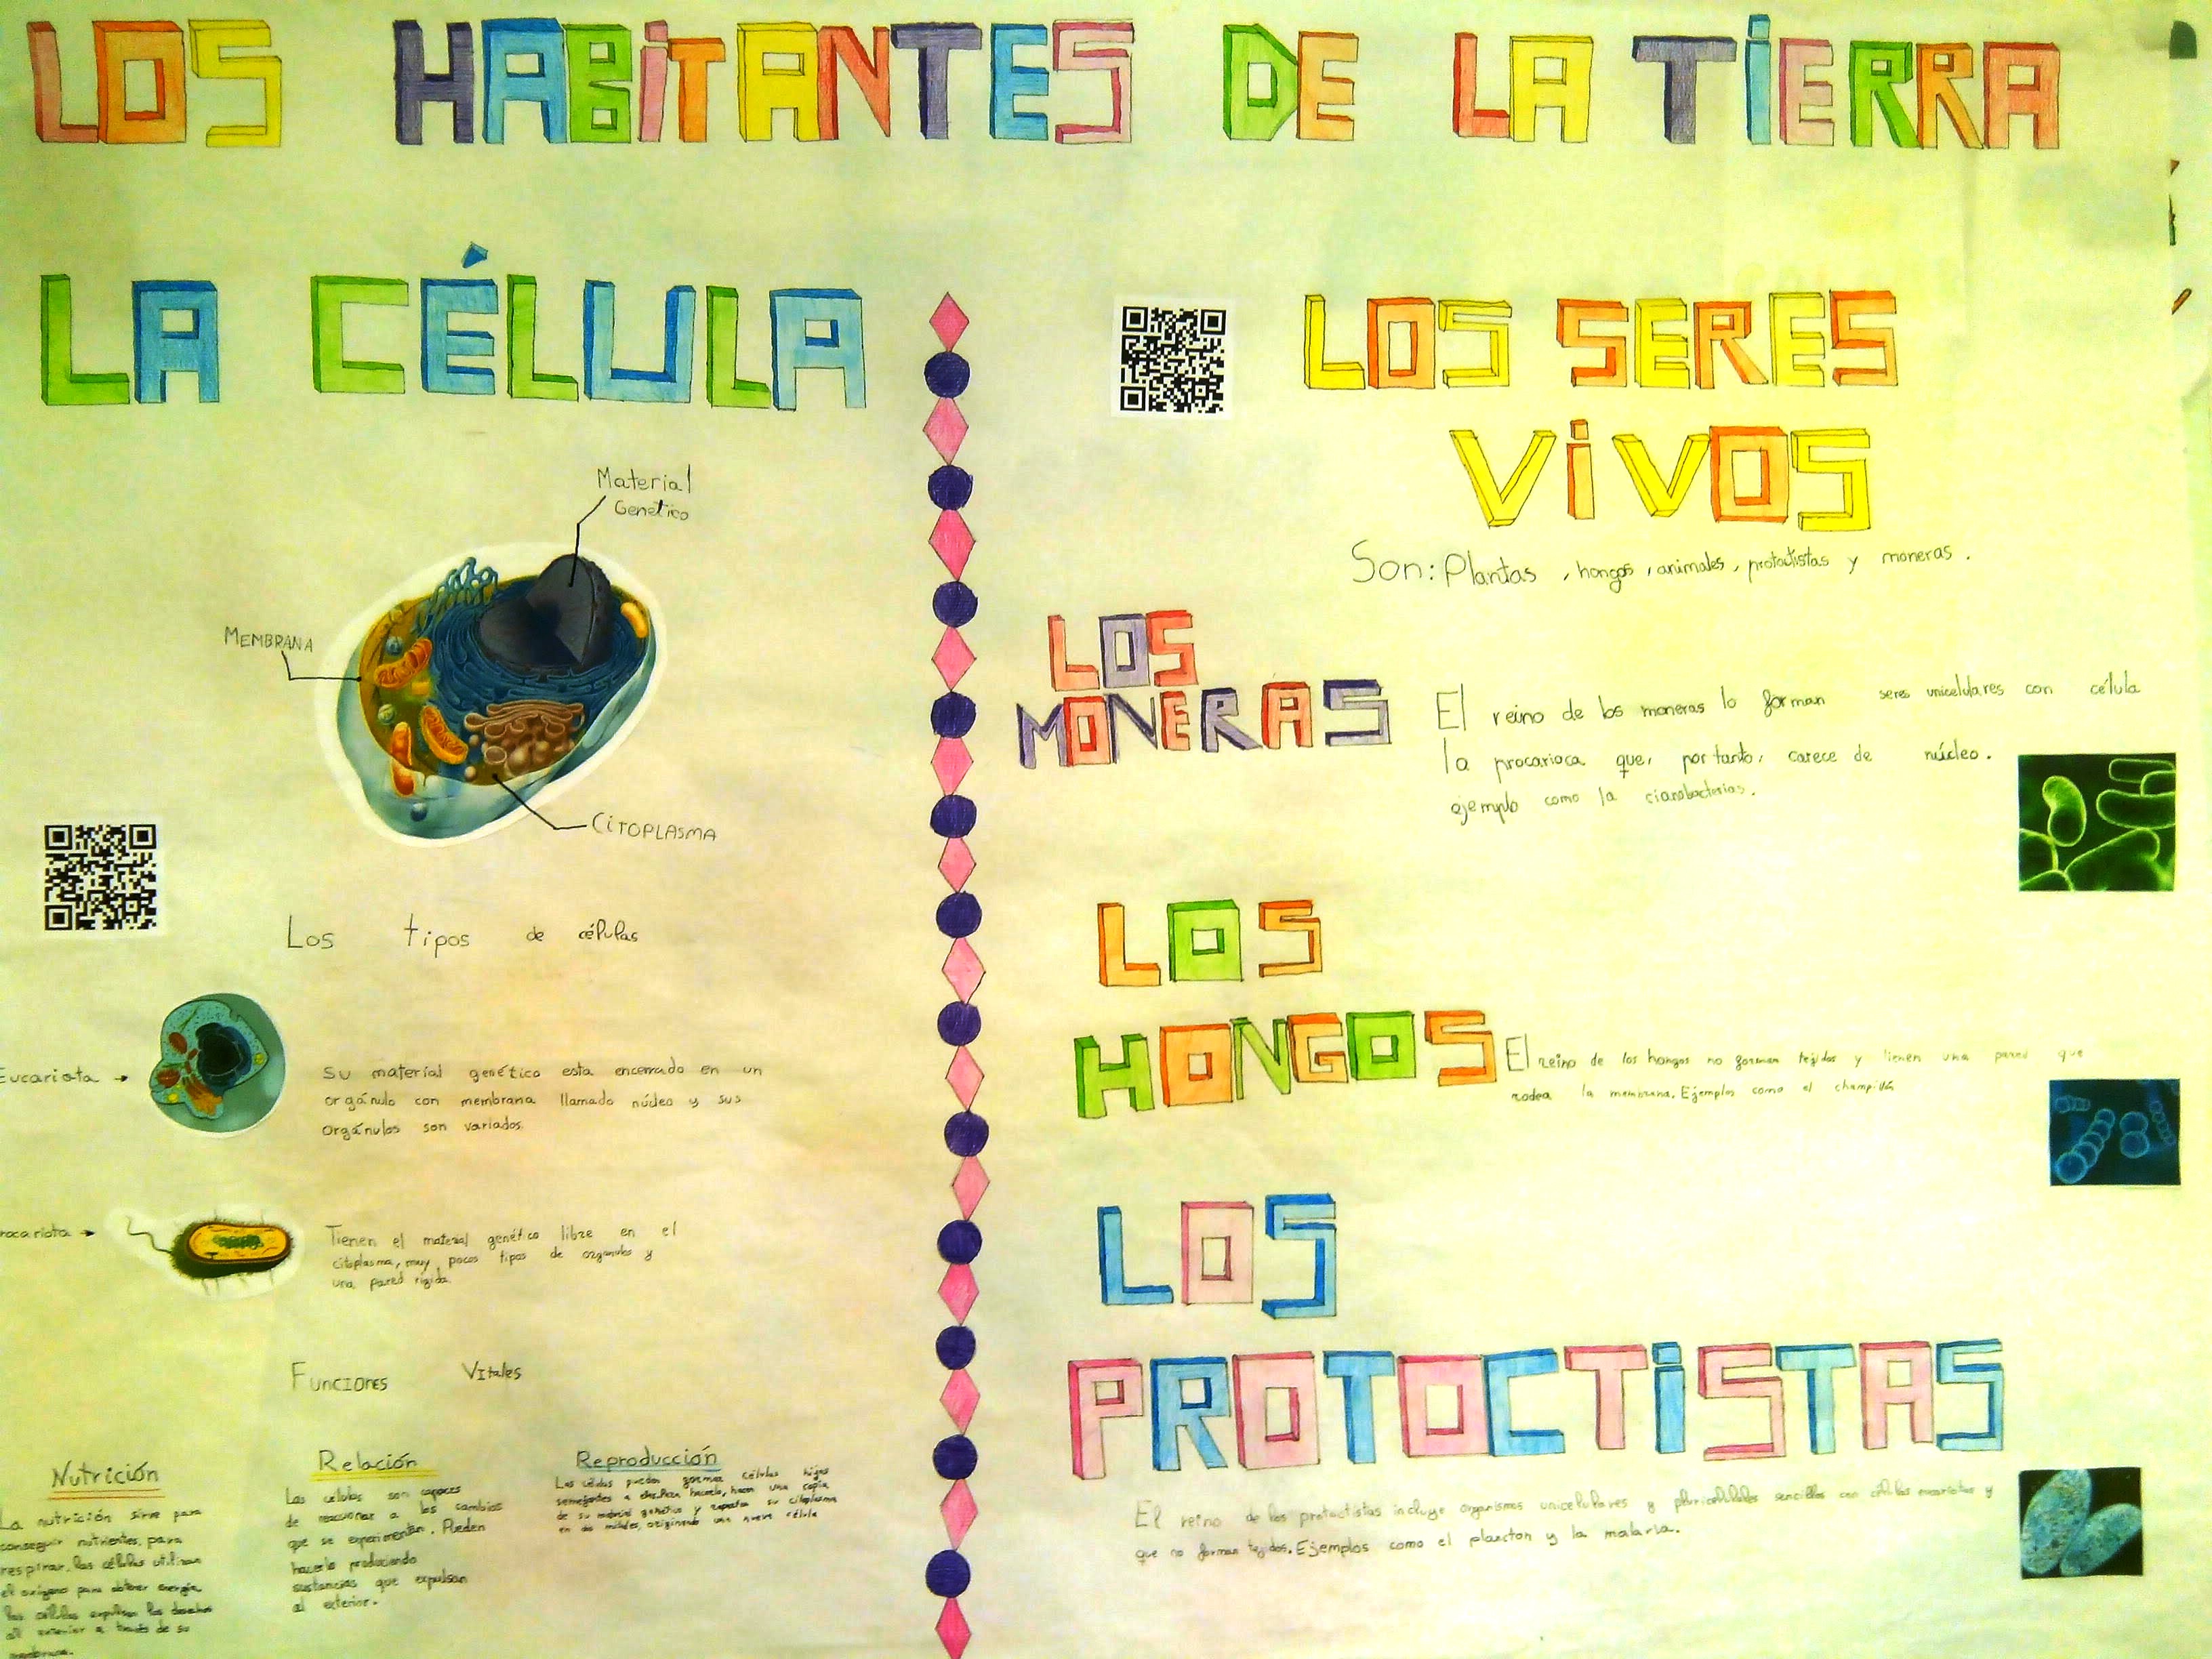 LOS HABITANTES DE LA TIERRA
LA CÉLULA
Material
Genetico
MEMBRANA
CITOPLASMA
Los tipos de células
Eucariota →
Su material genético esta encerrado en un
orgánulo con membrana llamado núcleo y sus
orgánulos son variados.
rocariota →
Tienen el material genético libre en el
citoplasma, muy pocos tipos de organulos y
una pared rígida.
Funciones Vitales
Nutrición
La nutrición sirve para
conseguir nutrientes, para
respirar, las células utilizan
el oxígeno para obtener energía
las células expulsan los desechos
all exterior a través de su
membrana.
Relación
Las células son capaces
de reaccionar a los cambios
que se experimentan. Pueden
hacerlo produciendo
sustancias que expulsan
al exterior.
Reproducción
Las células pueden formar células hijas
semejantes a ellas. Para hacerlo, hacen una copia
de su material genético y reparten su citoplasma
en dos mitades, originando una nueva célula
LOS SERES
VIVOS
Son: Plantas, hongos, animales, protoctistas y moneras.
LOS
MONERAS
El reino de los moneras lo forman seres unicelulares con célula
la procarioca que, por tanto, carece de núcleo.
ejemplo como la cianobacterias.
LOS
HONGOS
El reino de los hongos no forman tejidos y tienen una pared que
rodea la membrana. Ejemplos como el champiñ
LOS
PROTOCTISTAS
El reino de los protoctistas incluye organismos unicelulares y pluricelulales sencillos con células eucariotas y
que no forman tejidos. Ejemplos como el plancton y la malaria.